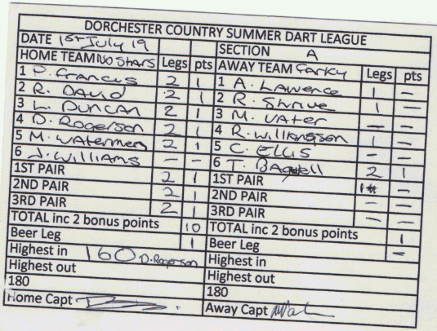 DORCHESTER COUNTRY SUMMER DART LEAGUE
DATE 1st July 19 SECTION A
HOME TEAM No Stars Legs pts AWAY TEAM Legs pts
1 P. Francis 2 1 1 A. Lawence 1 -
2 R. David 2 1 2 R. 1 -
3 L. Duncan 2 1 3 M. Vater - -
4 D. Rogerson 2 1 4 R. Wilkinson 1 -
5 M. Watermen 2 1 5 C. Ellis - -
6 J. Williams - - 6 T. Bagwell 2 1
1ST PAIR 2 1 1ST PAIR 1 -
2ND PAIR 2 1 2ND PAIR - -
3RD PAIR 2 1 3RD PAIR - -
TOTAL inc 2 bonus points 10 TOTAL inc 2 bonus points 1
Beer Leg 1 Beer Leg -
Highest in 160 D. Rogerson Highest in
Highest out Highest out
180 180
Home Capt Away Capt